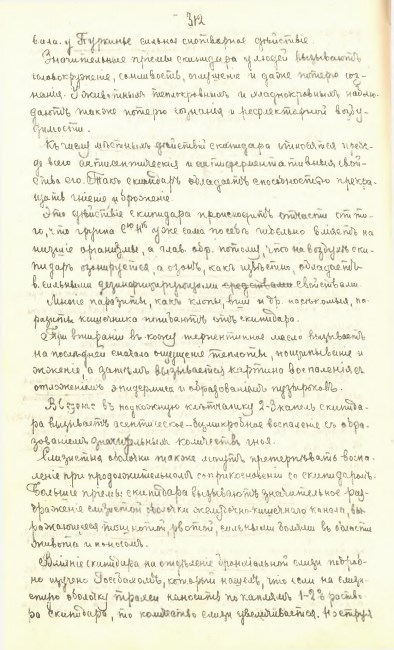 312
вала у Пуркинье сильное снотворное действіе.
Значительные пріемы скипидара у людей вызываютъ
головокруженіе, сонливость, опьяненіе и даже потерю соз-
нанія. У животныхъ теплокровныхъ и хладнокровныхъ наблю-
даютъ также потерю сознанія и рефлекторной возбу-
димости.
Къ числу мѣстныхъ дѣйствій скипидара относятся преж-
де всего антисептическія и антиферментативныя свой-
ства его. Такъ скипидаръ обладаетъ способностью прекра-
щать гніеніе и броженіе.
Это дѣйствіе скипидара происходитъ отчасти отъ то-
го, что группа уже сама по себѣ гибельно вліяетъ на
низшіе организмы, а глав. обр. потому, что на воздухѣ ски-
пидаръ озонируется, а озонъ, какъ извѣстно, обладаетъ
сильными дезинфицирующими свойствами.
Многіе паразиты, какъ клопы, вши и др. насѣкомыя, па-
разиты кишечника погибаютъ отъ скипидара.
При втираніи въ кожу терпентинное масло вызываетъ
на послѣдней сначала ощущеніе теплоты, пощипываніе и
жженіе, а затѣмъ вызывается картина воспаленія съ
отложеніемъ эпидермиса и образованіемъ пузырьковъ.
въ подкожную клѣтчатку 2-3 капель скипида-
ра вызываетъ асептическое-безмикробное воспаленіе съ обра-
зованіемъ значительныхъ количествъ гноя.
Слизистыя оболочки также могутъ претерпѣвать воспа-
леніе при продолжительномъ соприкосновеніи со скипидаромъ.
Большіе пріемы скипидара вызываютъ значительное раз-
драженіе слизистой оболочки желудочно-кишечнаго канала, вы-
ражающееся тошнотой, рвотой, сильными болями въ области
живота и поносомъ.
Вліяніе скипидара на отдѣленіе бронхіальной слизи подроб-
но изучено Россбахомъ, который нашелъ, что если на слизи-
стую оболочку трахеи наносить по каплямъ 1-2% раство-
ра скипидара, то количество слизи увеличивается. Но струя